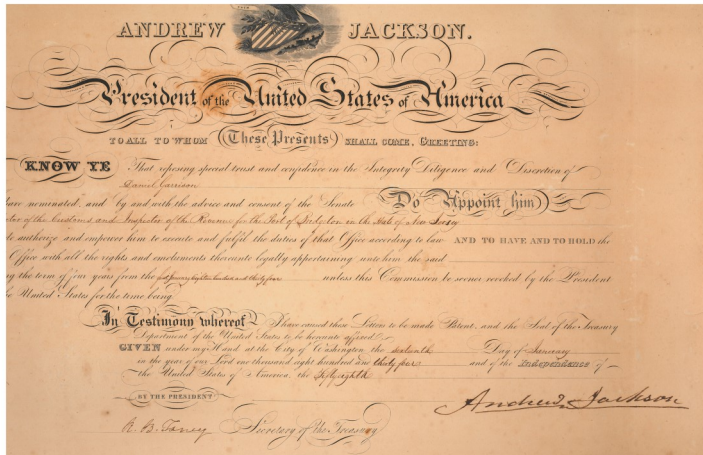 ANDREW JACKSON.
President of the United States of America
TO ALL TO WHOM These Presents SHALL COME, GREETING:
KNOW YE That reposing special trust and confidence in the Integrity Diligence and Discretion of
Daniel Garrison
have nominated, and by and with the advice and consent of the Senate Do Appoint him
of the Customs and Inspector of the Revenue for the Port of in the State of New Jersey
to authorize and empower him to execute and fulfil the duties of that Office according to law AND TO HAVE AND TO HOLD the
Office with all the rights and emoluments thereunto legally appertaining unto him the said
the term of four years from the first January Eighteen hundred and thirty four unless this Commission be sooner revoked by the President
United States for the time being.
In Testimony whereof I have caused these Letters to be made Patent, and the Seal of the Treasury
Department of the United States to be hereunto affixed.
GIVEN under my Hand at the City of Washington the sixteenth Day of January
in the year of our Lord one thousand eight hundred and thirty four and of the Independence of
the United States of America, the Fifty eighth
BY THE PRESIDENT
Andrew Jackson
R. B. Taney Secretary of the Treasury